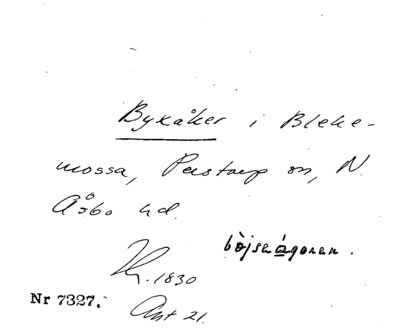 Byxåker i Bleke-
mossa, Perstorp sn, N.
Åsbo hd.
bòjseágoren.
1830
Nr 7327. Ant 21.